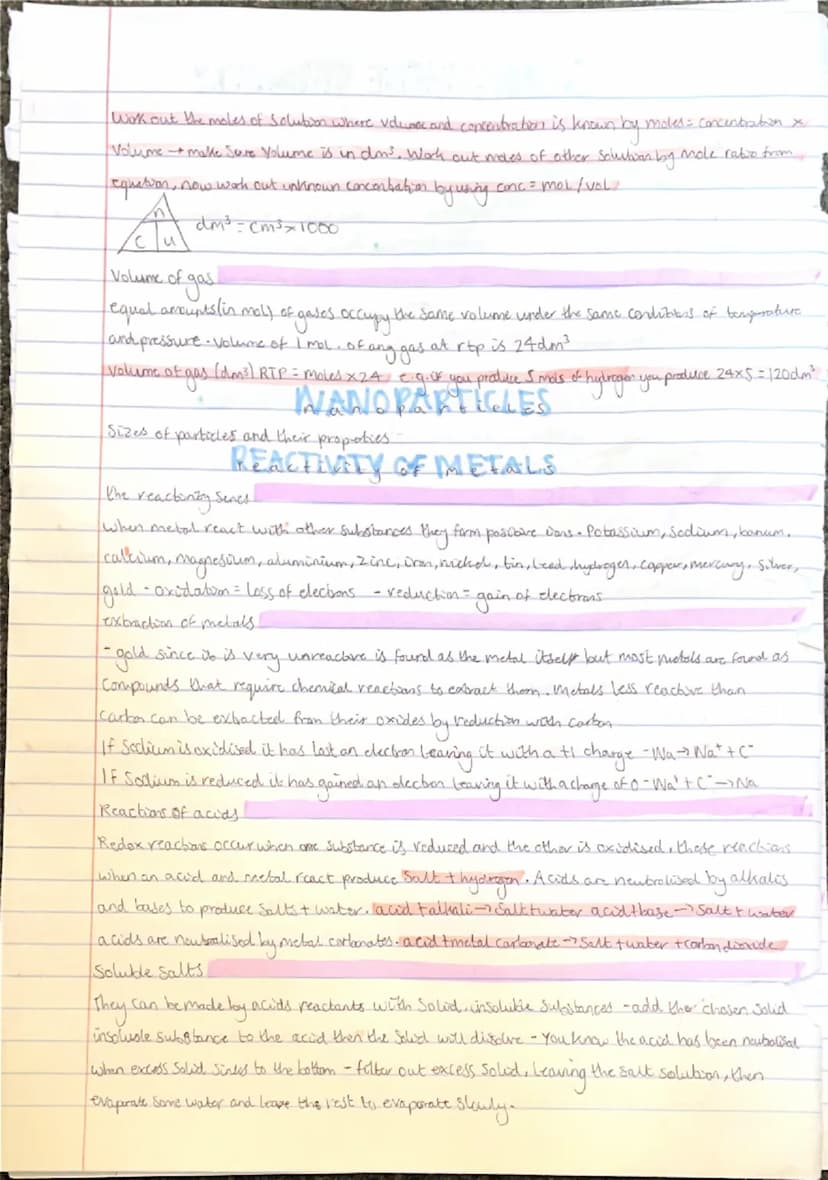 Work out the moles of solution where volume and concentration is known by moles = concentration ×
volume → make sure volume is in dm³. Work out moles of other solution by mole ratio from
equation, now work out unknown concentration by using conc = mol/vol
n
c u
dm³ = cm³ × 1000
Volume of gas
equal amounts (in mol) of gases occupy the same volume under the same conditions of temperature
and pressure. Volume of 1 mol. of any gas at rtp is 24dm³
Volume of gas (dm³) RTP = moles × 24 e.g. if you produce 5 mols of hydrogen you produce 24×5 = 120dm³
NANOPARTICLES
nanoparticles
Sizes of particles and their properties -
REACTIVITY OF METALS
reactivity of metals
the reactivity series
When metal react with other substances they form positive ions. Potassium, sodium, barium,
calcium, magnesium, aluminium, zinc, iron, nickel, tin, lead, hydrogen, copper, mercury, silver,
gold - oxidation = loss of electrons - reduction = gain of electrons
extraction of metals
- gold since it is very unreactive is found as the metal itself but most metals are found as
compounds that require chemical reactions to extract them. metals less reactive than
carbon can be extracted from their oxides by reduction with carbon
If Sodium is oxidised it has lost an electron leaving it with a +1 charge - Na → Na⁺ + C⁻
If Sodium is reduced it has gained an electron leaving it with a charge of 0 - Na⁺ + C⁻ → Na
Reactions of acids
Redox reactions occur when one substance is reduced and the other is oxidised, these reactions
when an acid and metal react produce Salt + hydrogen. Acids are neutralised by alkalis
and bases to produce salts + water. acid + alkali → Salt + water acid + base → Salt + water
acids are neutralised by metal carbonates. acid + metal carbonate → Salt + water + carbon dioxide
Soluble Salts
They can be made by acids reactants with solid, insoluble substances - add the chosen solid
insoluble substance to the acid then the solid will disolve - You know the acid has been neutralised
when excess solid sinks to the bottom - filter out excess solid, leaving the salt solution, then
evaporate some water and leave the rest to evaporate slowly.